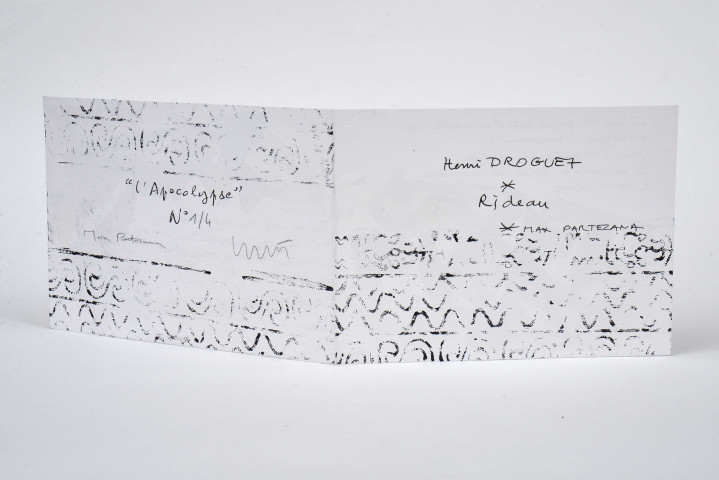 "l'Apocalypse"
N° 1/4
Henri DROGUET
*
Rideau
* MAX PARTEZANA